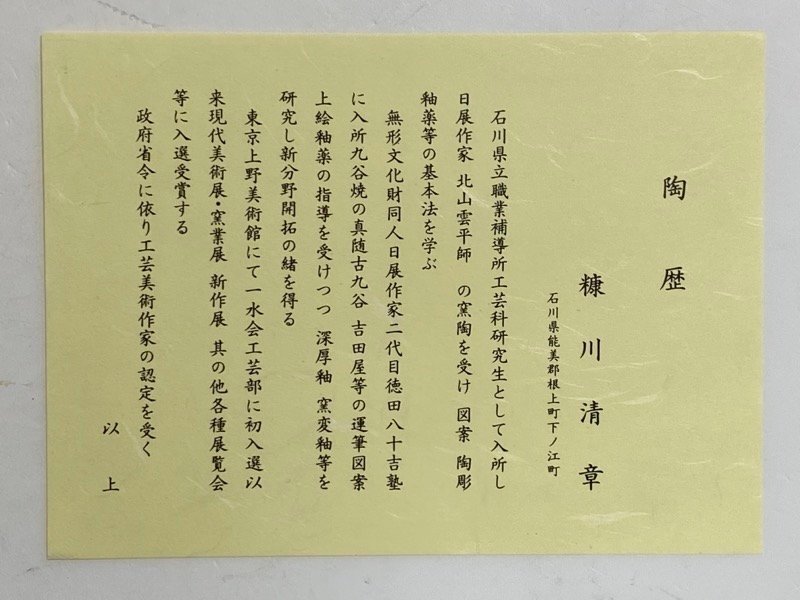 陶歴
糠川清章
石川県能美郡根上町下ノ江町
石川県立職業補導所工芸科研究生として入所し
日展作家 北山雲平師 の窯陶を受け 図案 陶彫
釉薬等の基本法を学ぶ
無形文化財同人日展作家二代目徳田八十吉塾
に入所九谷焼の真随古九谷 吉田屋等の運筆図案
上絵釉薬の指導を受けつつ 深厚釉 窯変釉等を
研究し新分野開拓の緒を得る
東京上野美術館にて一水会工芸部に初入選以
来現代美術展・窯業展 新作展 其の他各種展覧会
等に入選受賞する
政府省令に依り工芸美術作家の認定を受く
以上